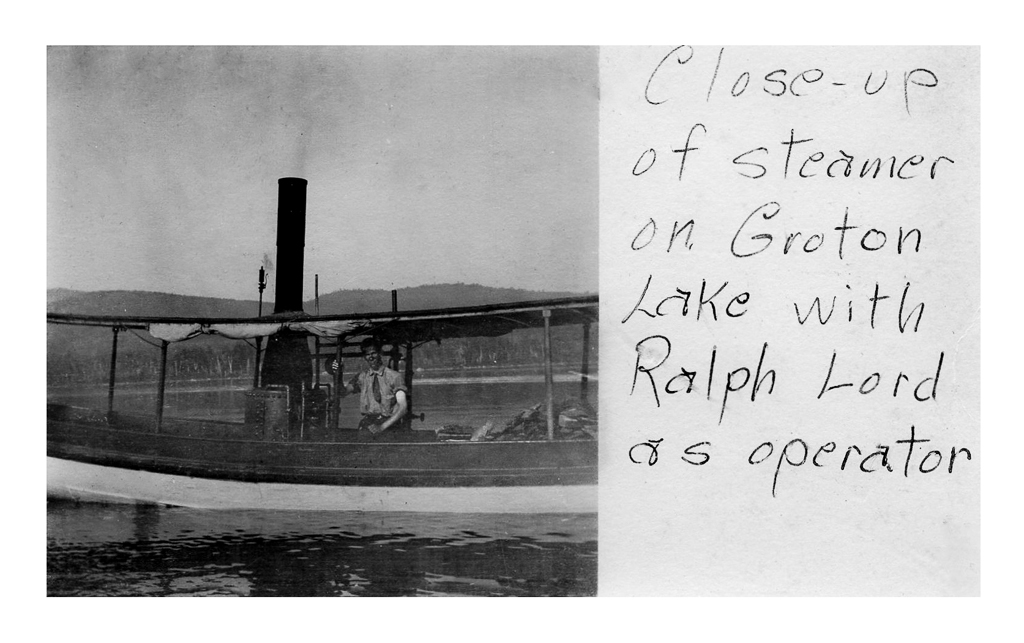 Close-up
of steamer
on Groton
Lake with
Ralph Lord
as operator